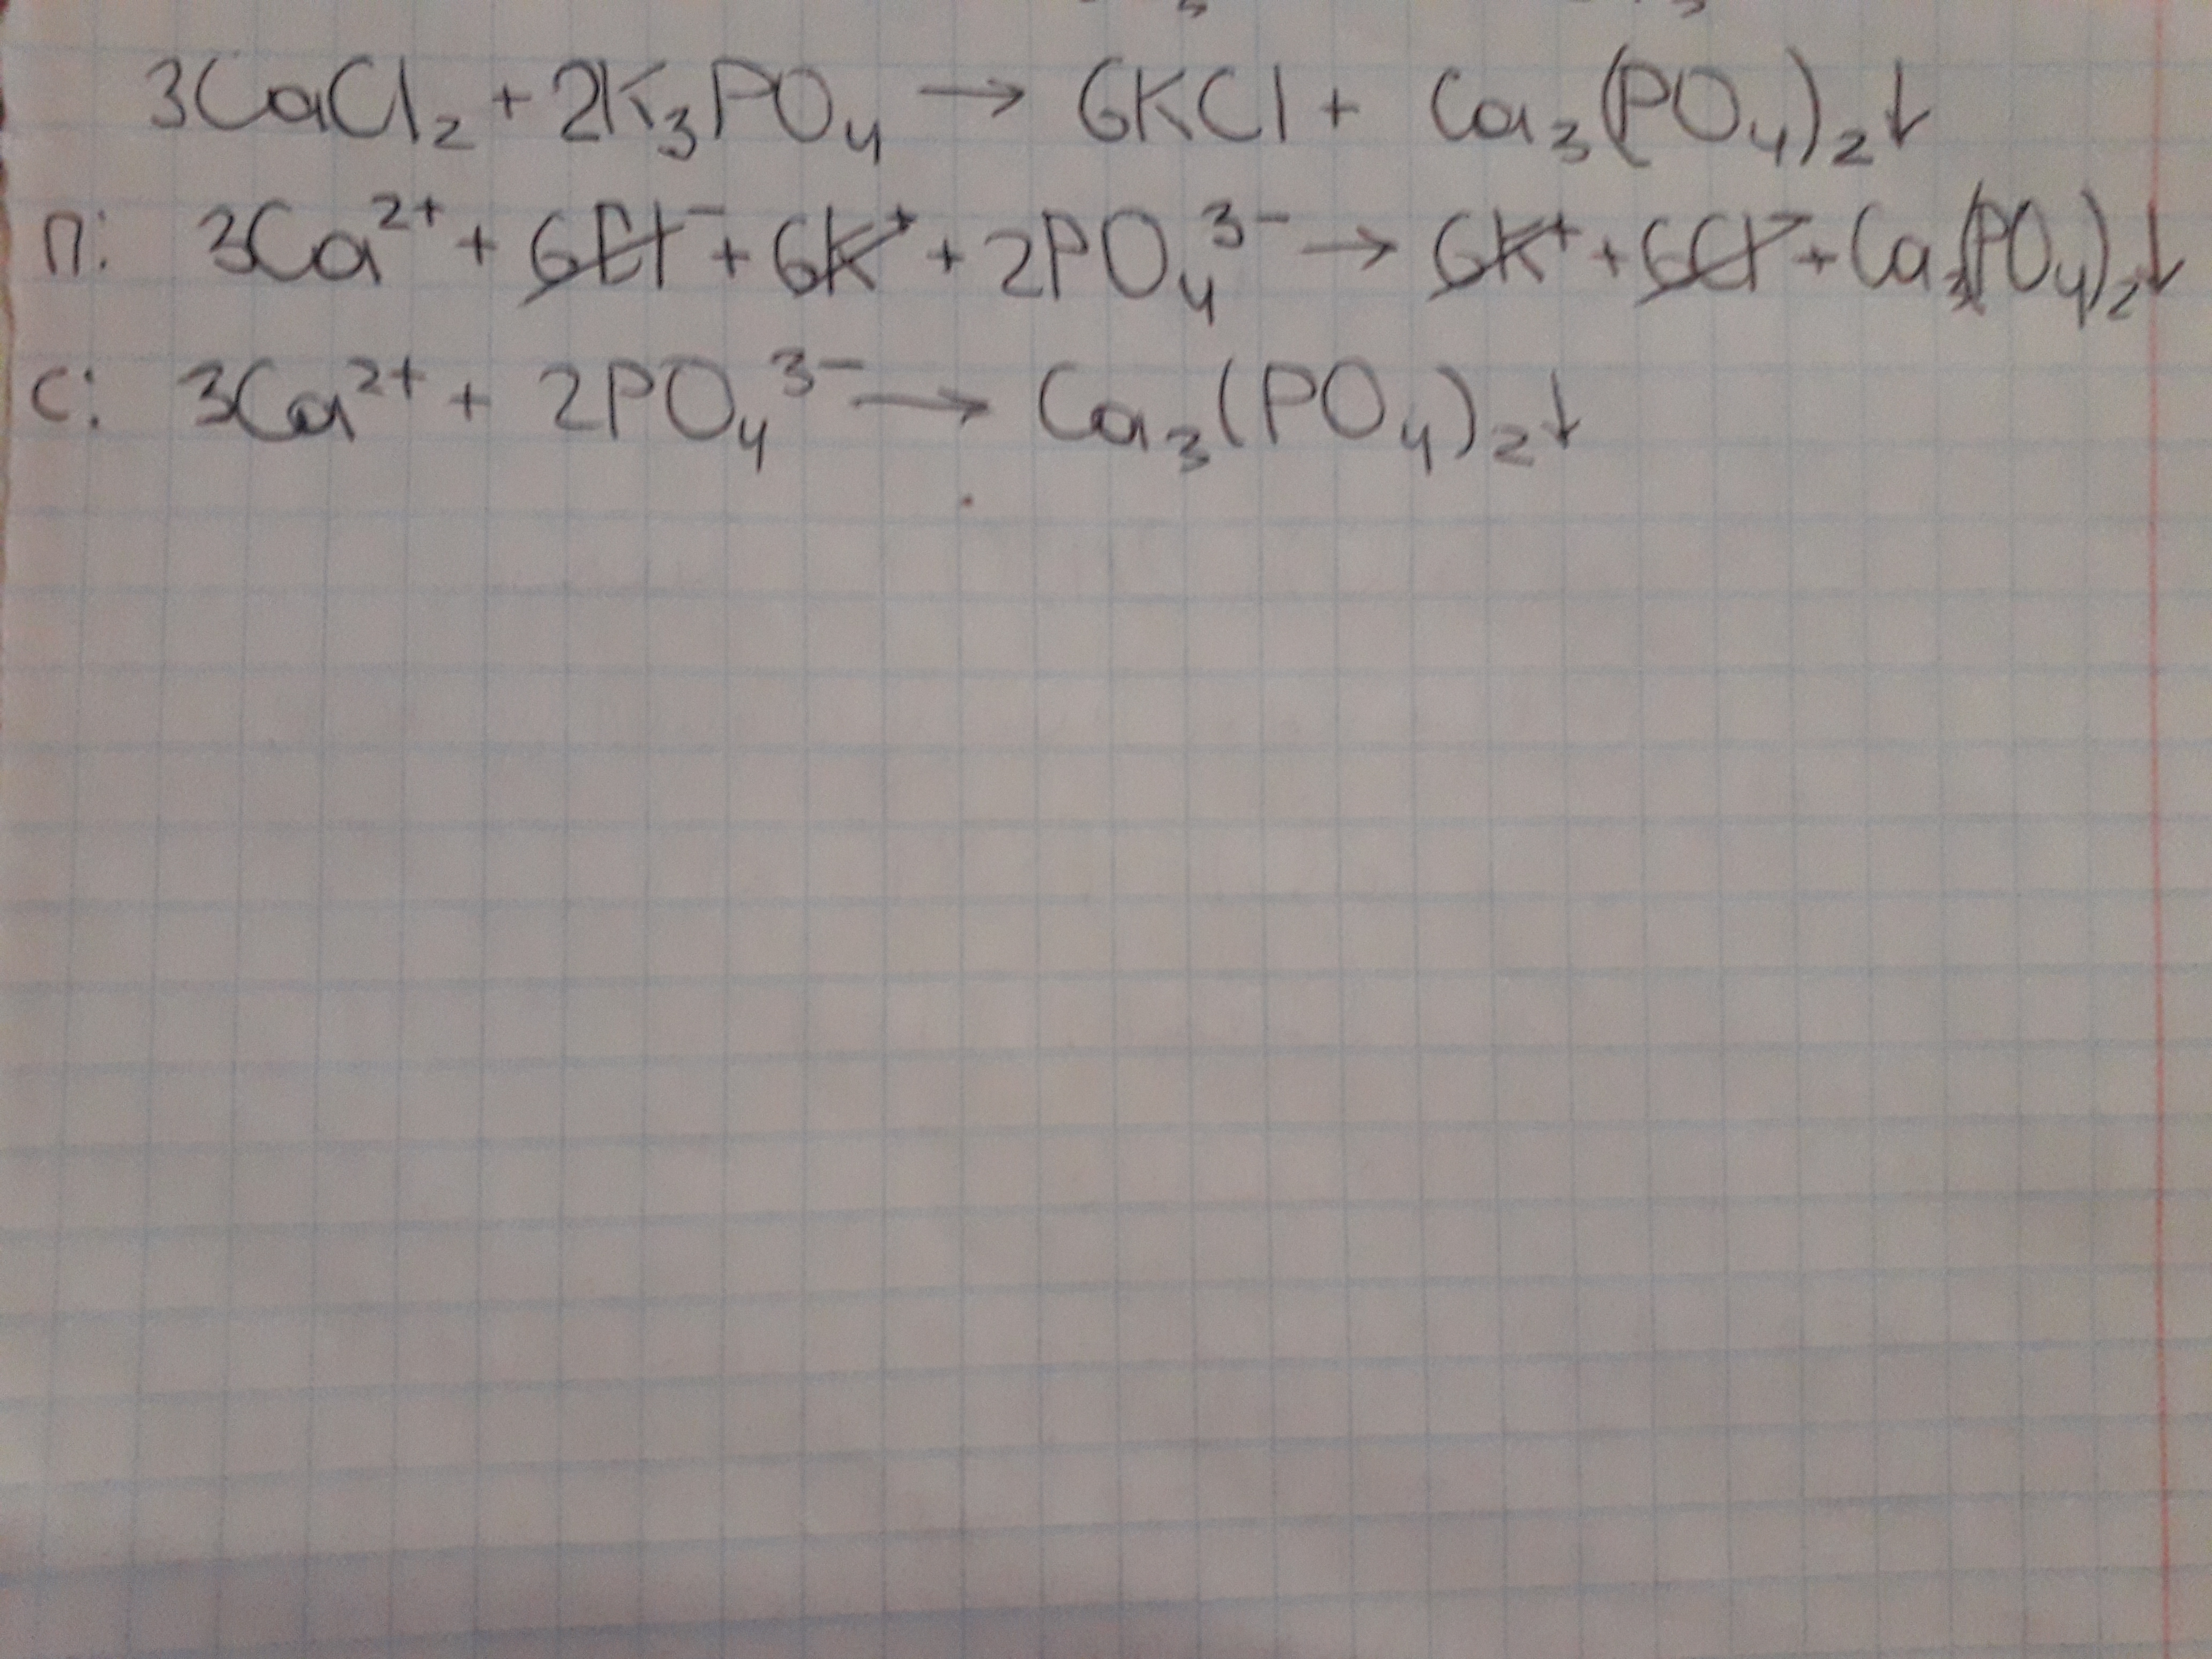 3CaCl₂ + 2K₃PO₄ → 6KCl + Ca₃(PO₄)₂↓
П: 3Ca²⁺ + 6Cl⁻ + 6K⁺ + 2PO₄³⁻ → 6K⁺ + 6Cl⁻ + Ca₃(PO₄)₂↓
С: 3Ca²⁺ + 2PO₄³⁻ → Ca₃(PO₄)₂↓